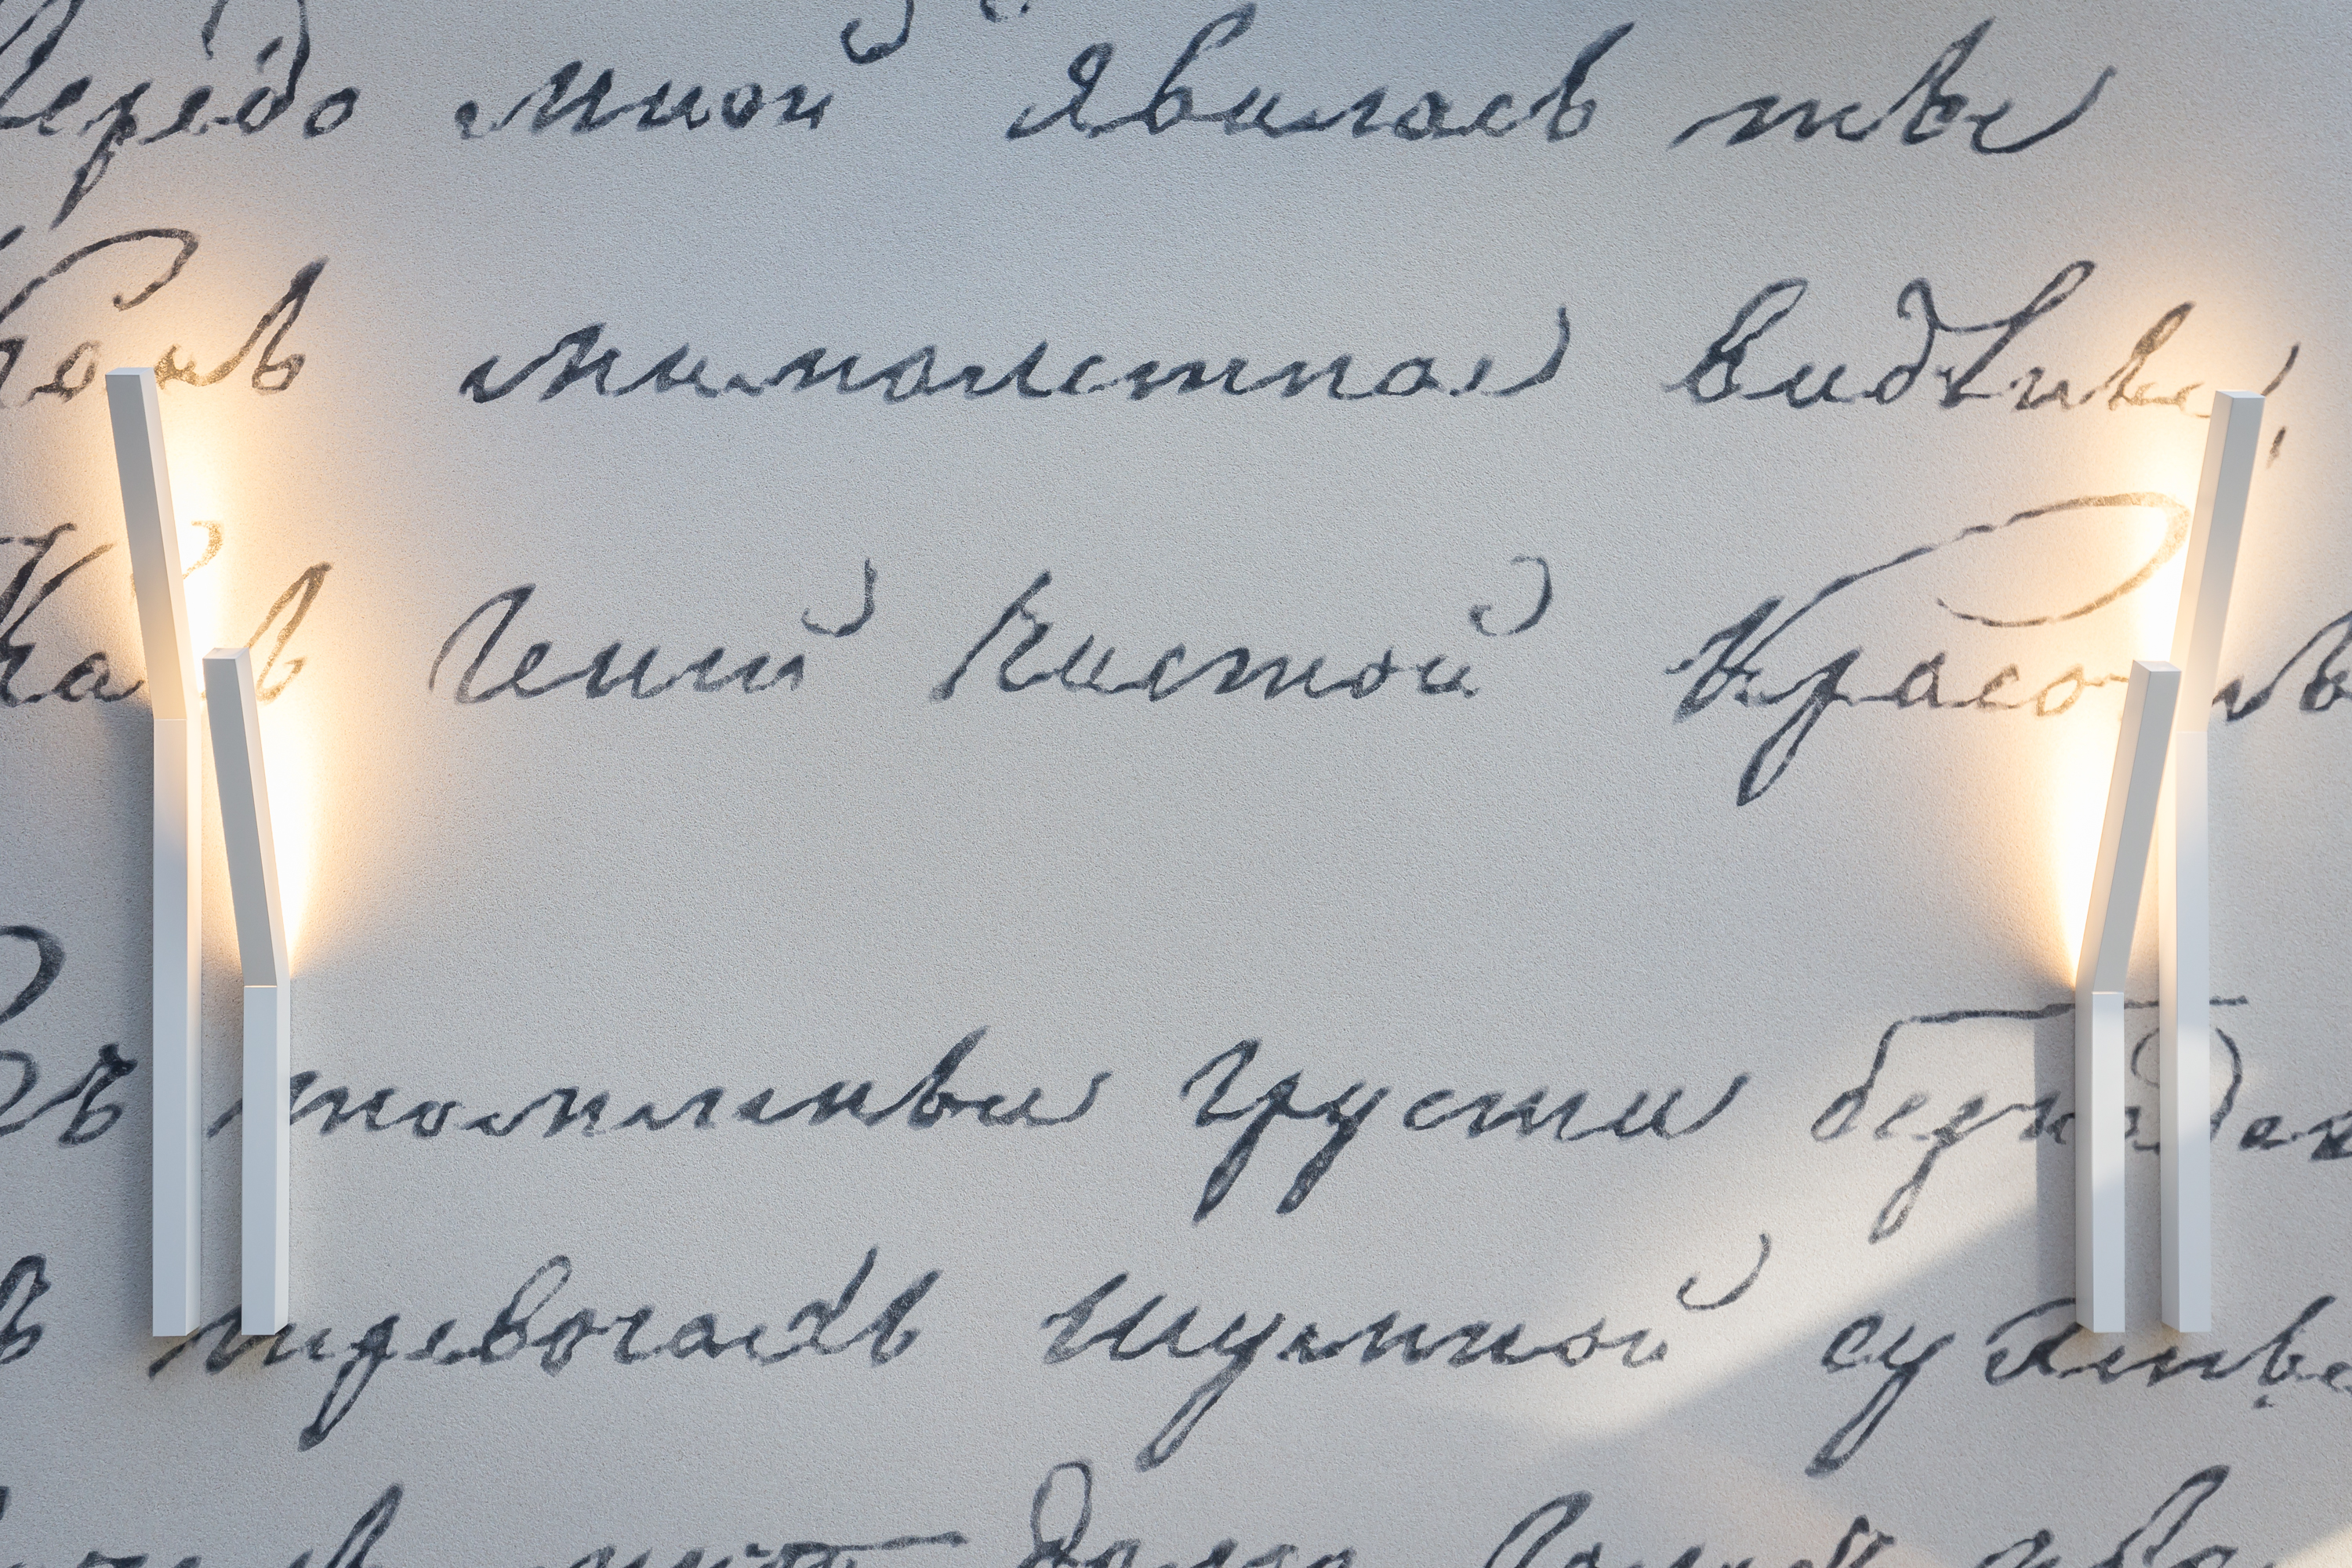 Передо мной Явилась ты
Какъ мимолетное видѣнье,
Какъ Гений Чистой Красоты
Въ томленьи грусти безнадеж
въ тревогахъ шумной суеты
долго Голосъ